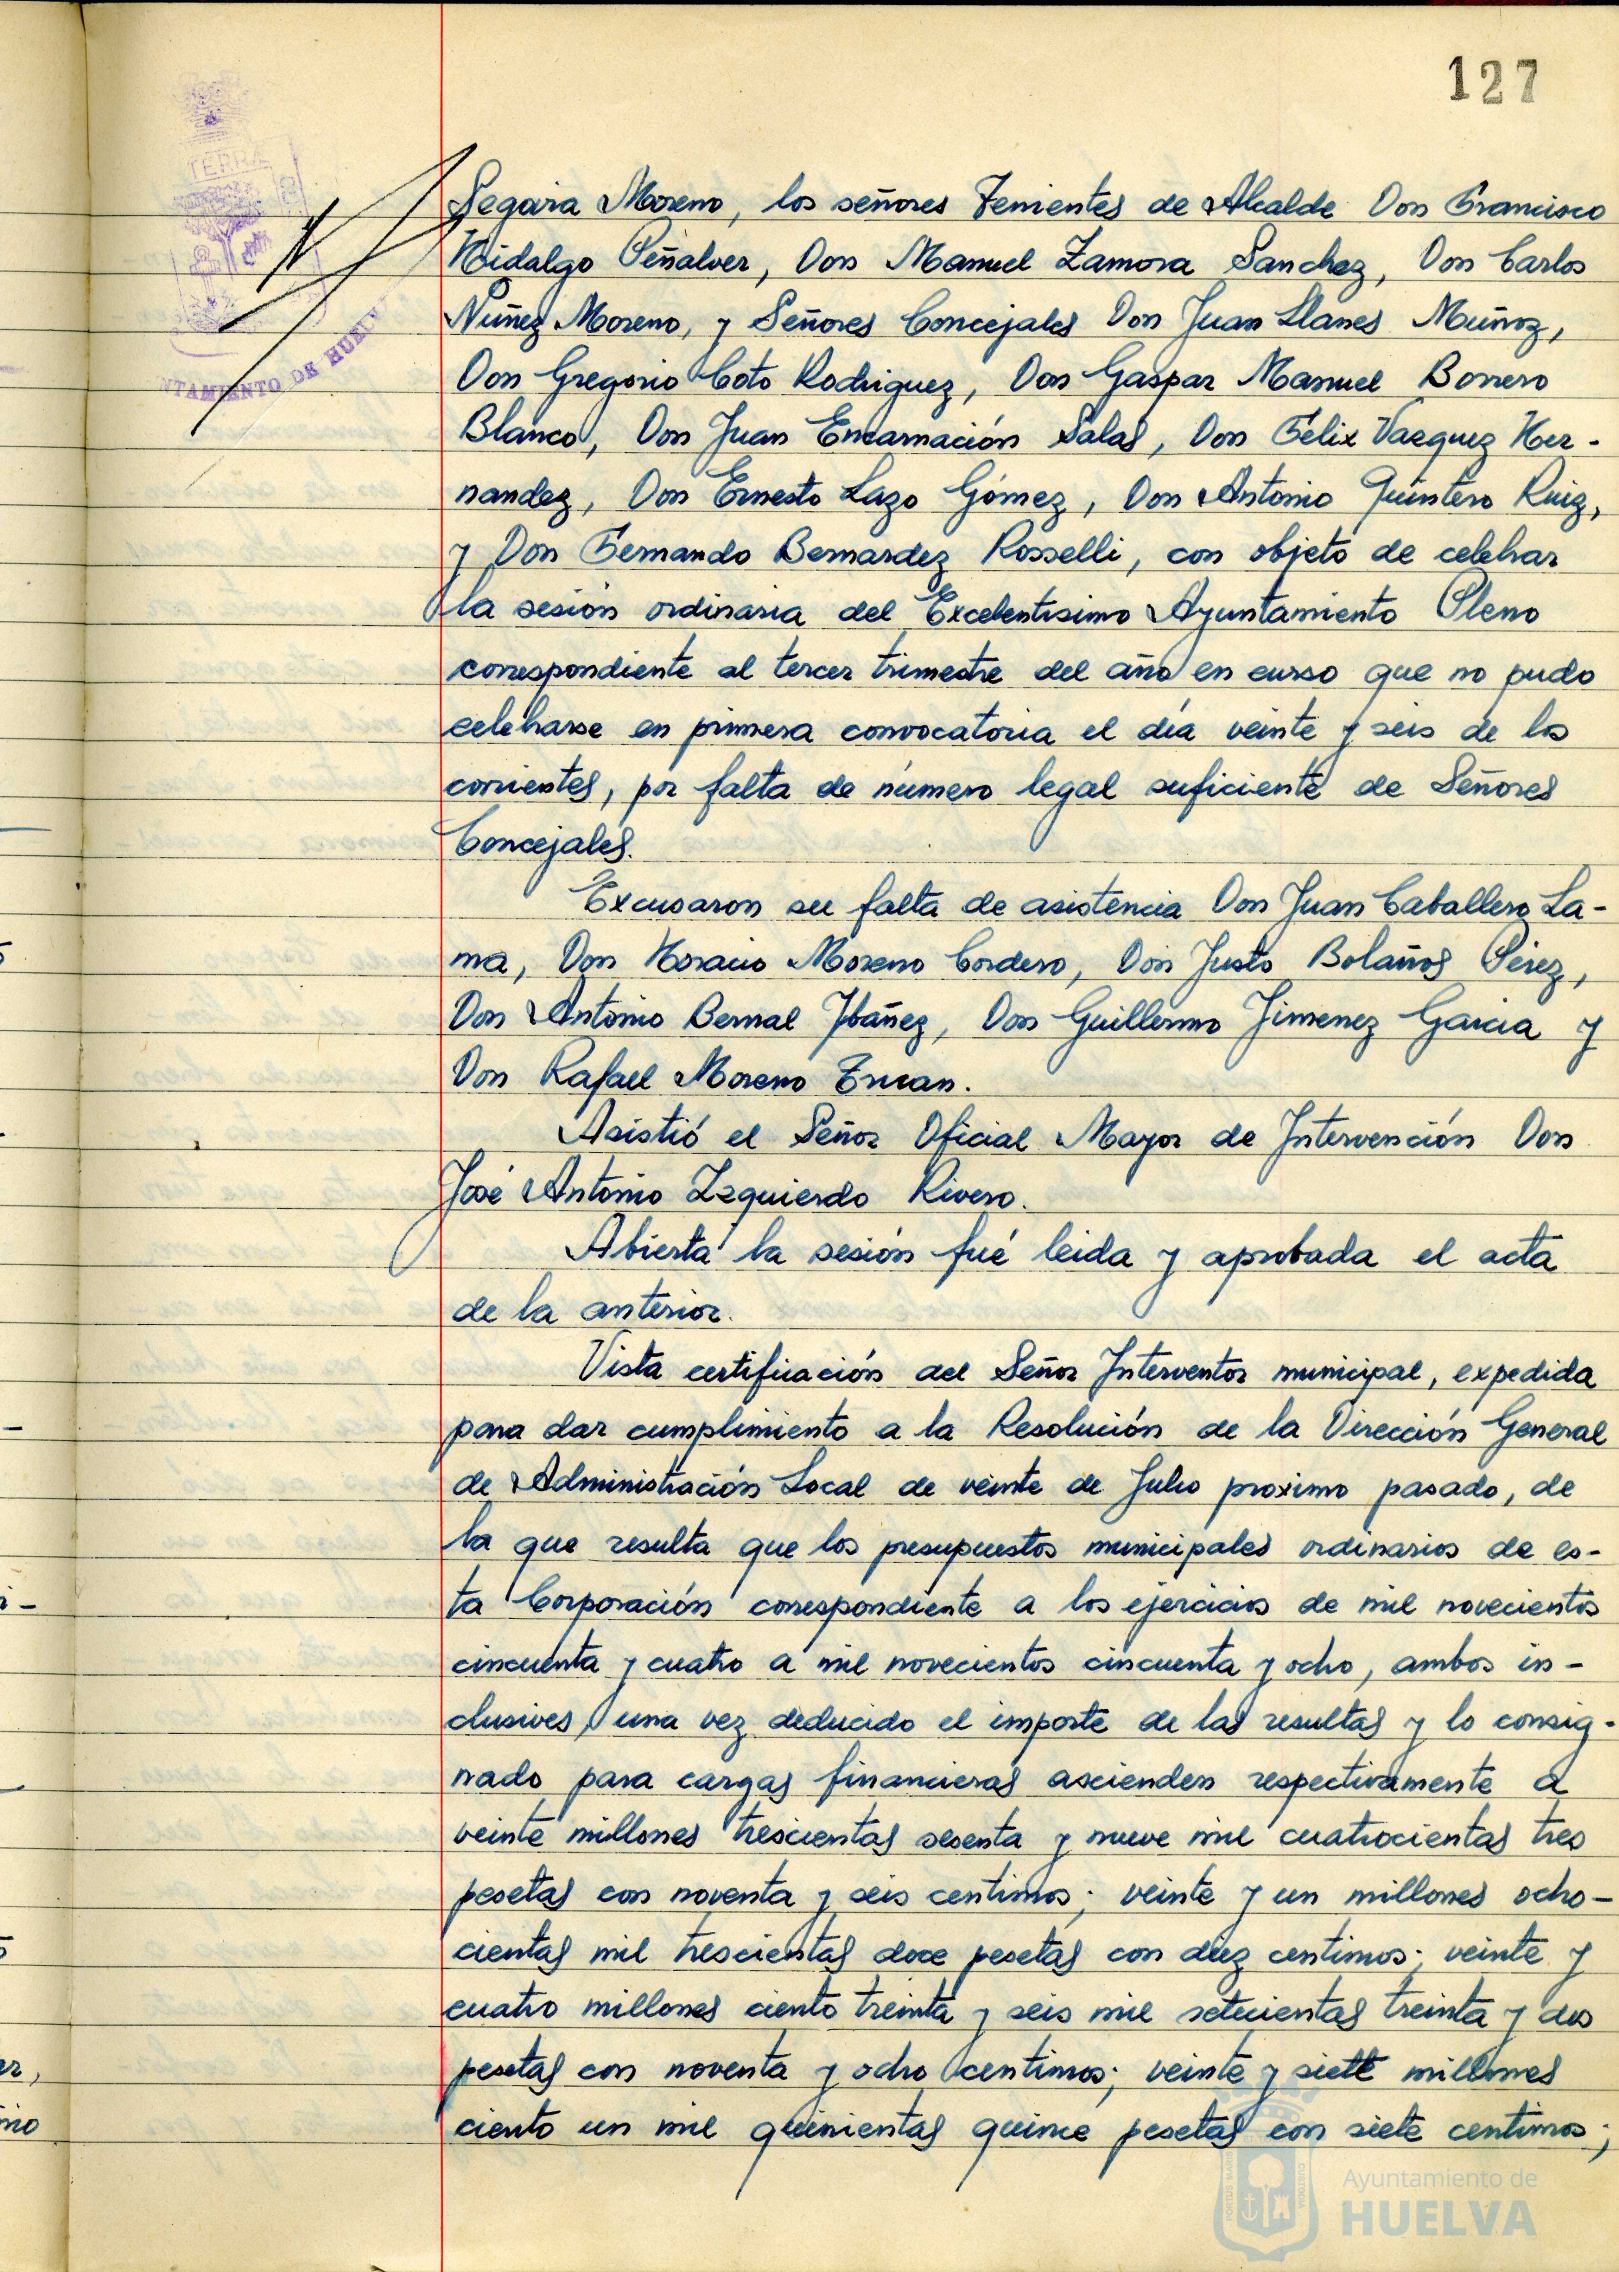 127
TERRA
NTAMIENTO DE HUELV
Segovia Moreno, los señores Tenientes de Alcalde Don Francisco
Hidalgo Peñalver, Don Manuel Zamora Sanchez, Don Carlos
Nuñez Moreno, y Señores Concejales Don Juan Llanes Muñoz,
Don Gregorio Coto Rodriguez, Don Gaspar Manuel Borrero
Blanco, Don Juan Encarnación Salas, Don Felix Vazquez Her-
nandez, Don Ernesto Lazo Gómez, Don Antonio Quintero Ruiz,
y Don Fernando Bernardez Rosselli, con objeto de celebrar
la sesión ordinaria del Excelentisimo Ayuntamiento Pleno
correspondiente al tercer trimestre del año en curso que no pudo
celebrarse en primera convocatoria el día veinte y seis de los
corrientes, por falta de número legal suficiente de Señores
Concejales.
Excusaron su falta de asistencia Don Juan Caballero La-
ma, Don Horacio Moreno Cordero, Don Justo Bolaños Pérez,
Don Antonio Bernal Ibañez, Don Guillermo Jimenez Garcia y
Don Rafael Moreno
Asistió el Señor Oficial Mayor de Intervención Don
José Antonio Izquierdo Rivero.
Abierta la sesión fué leida y aprobada el acta
de la anterior.
Vista certificación del Señor Interventor municipal, expedida
para dar cumplimiento a la Resolución de la Dirección General
de Administración Local de veinte de Julio proximo pasado, de
la que resulta que los presupuestos municipales ordinarios de es-
ta Corporación correspondiente a los ejercicios de mil novecientos
cincuenta y cuatro a mil novecientos cincuenta y ocho, ambos in-
clusives, una vez deducido el importe de las resultas y lo consig-
nado para cargas financieras ascienden respectivamente a
veinte millones trescientas sesenta y nueve mil cuatrocientas tres
pesetas con noventa y seis centimos; veinte y un millones ocho-
cientas mil trescientas doce pesetas con diez centimos; veinte y
cuatro millones ciento treinta y seis mil setecientas treinta y dos
pesetas con noventa y ocho centimos; veinte y siete millones
ciento un mil quinientas quince pesetas con siete centimos;
Ayuntamiento de
HUELVA